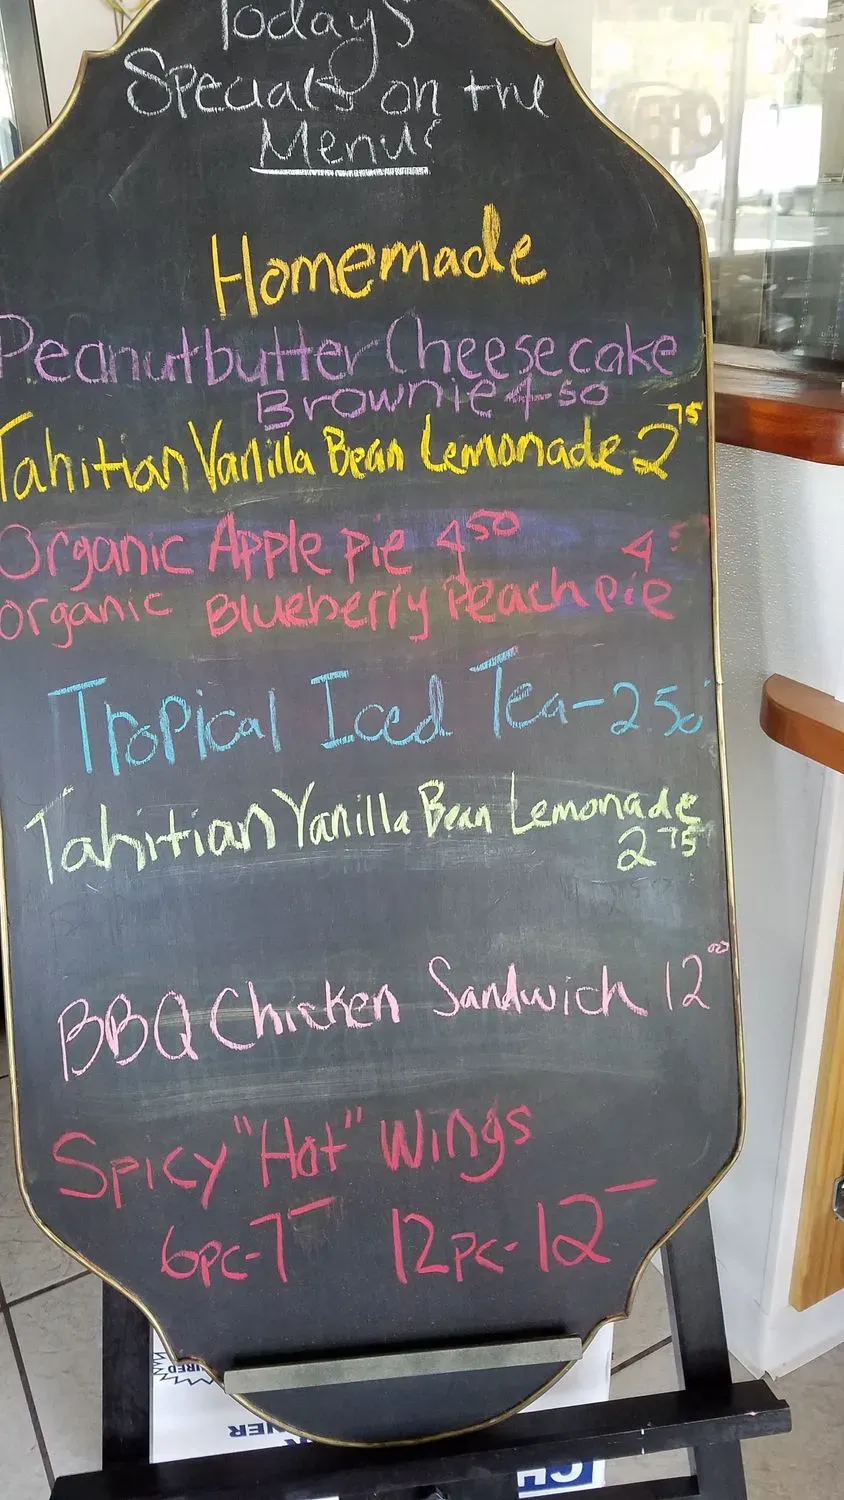 Today's
Specials on the
Menu:
Homemade
Peanutbutter Cheesecake
Brownie 4.50
Tahitian Vanilla Bean Lemonade 2 75
Organic Apple pie 4 50 4 5
organic Blueberry Peach pie
Tropical Iced Tea - 2 50
Tahitian Vanilla Bean Lemonade
2 75
BBQ Chicken Sandwich 12 00
Spicy "Hot" Wings
6pc - 7 - 12pc - 12 -